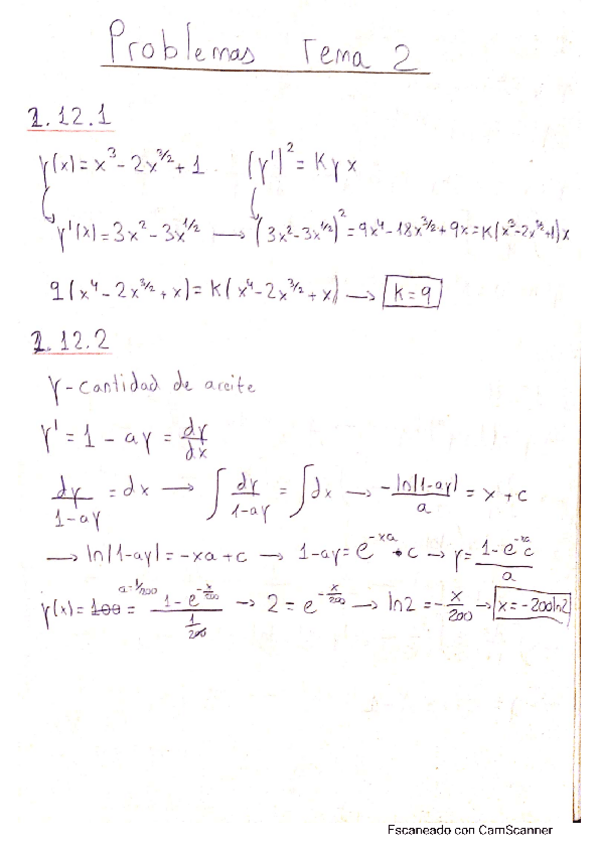 Problemas Tema 2
2.12.1
y(x) = x³ - 2x^3/2 + 1 (y')² = K y x
y'(x) = 3x² - 3x^1/2 → (3x² - 3x^1/2)² = 9x⁴ - 18x^3/2 + 9x = K(x³ - 2x^3/2 + 1)x
9(x⁴ - 2x^3/2 + x) = K(x⁴ - 2x^3/2 + x) → K = 9
2.12.2
y - cantidad de aceite
y' = 1 - ay = dy/dx
dy/1-ay = dx → ∫ dy/1-ay = ∫ dx → -ln|1-ay|/a = x + c
→ ln|1-ay| = -xa + c → 1-ay = e^-xa · c → y = 1 - e^-xa c/a
a = 1/200
y(x) = 100 = 1 - e^-x/200 / 1/200 → 2 = e^-x/200 → ln2 = -x/200 → x = -200ln2
Escaneado con CamScanner